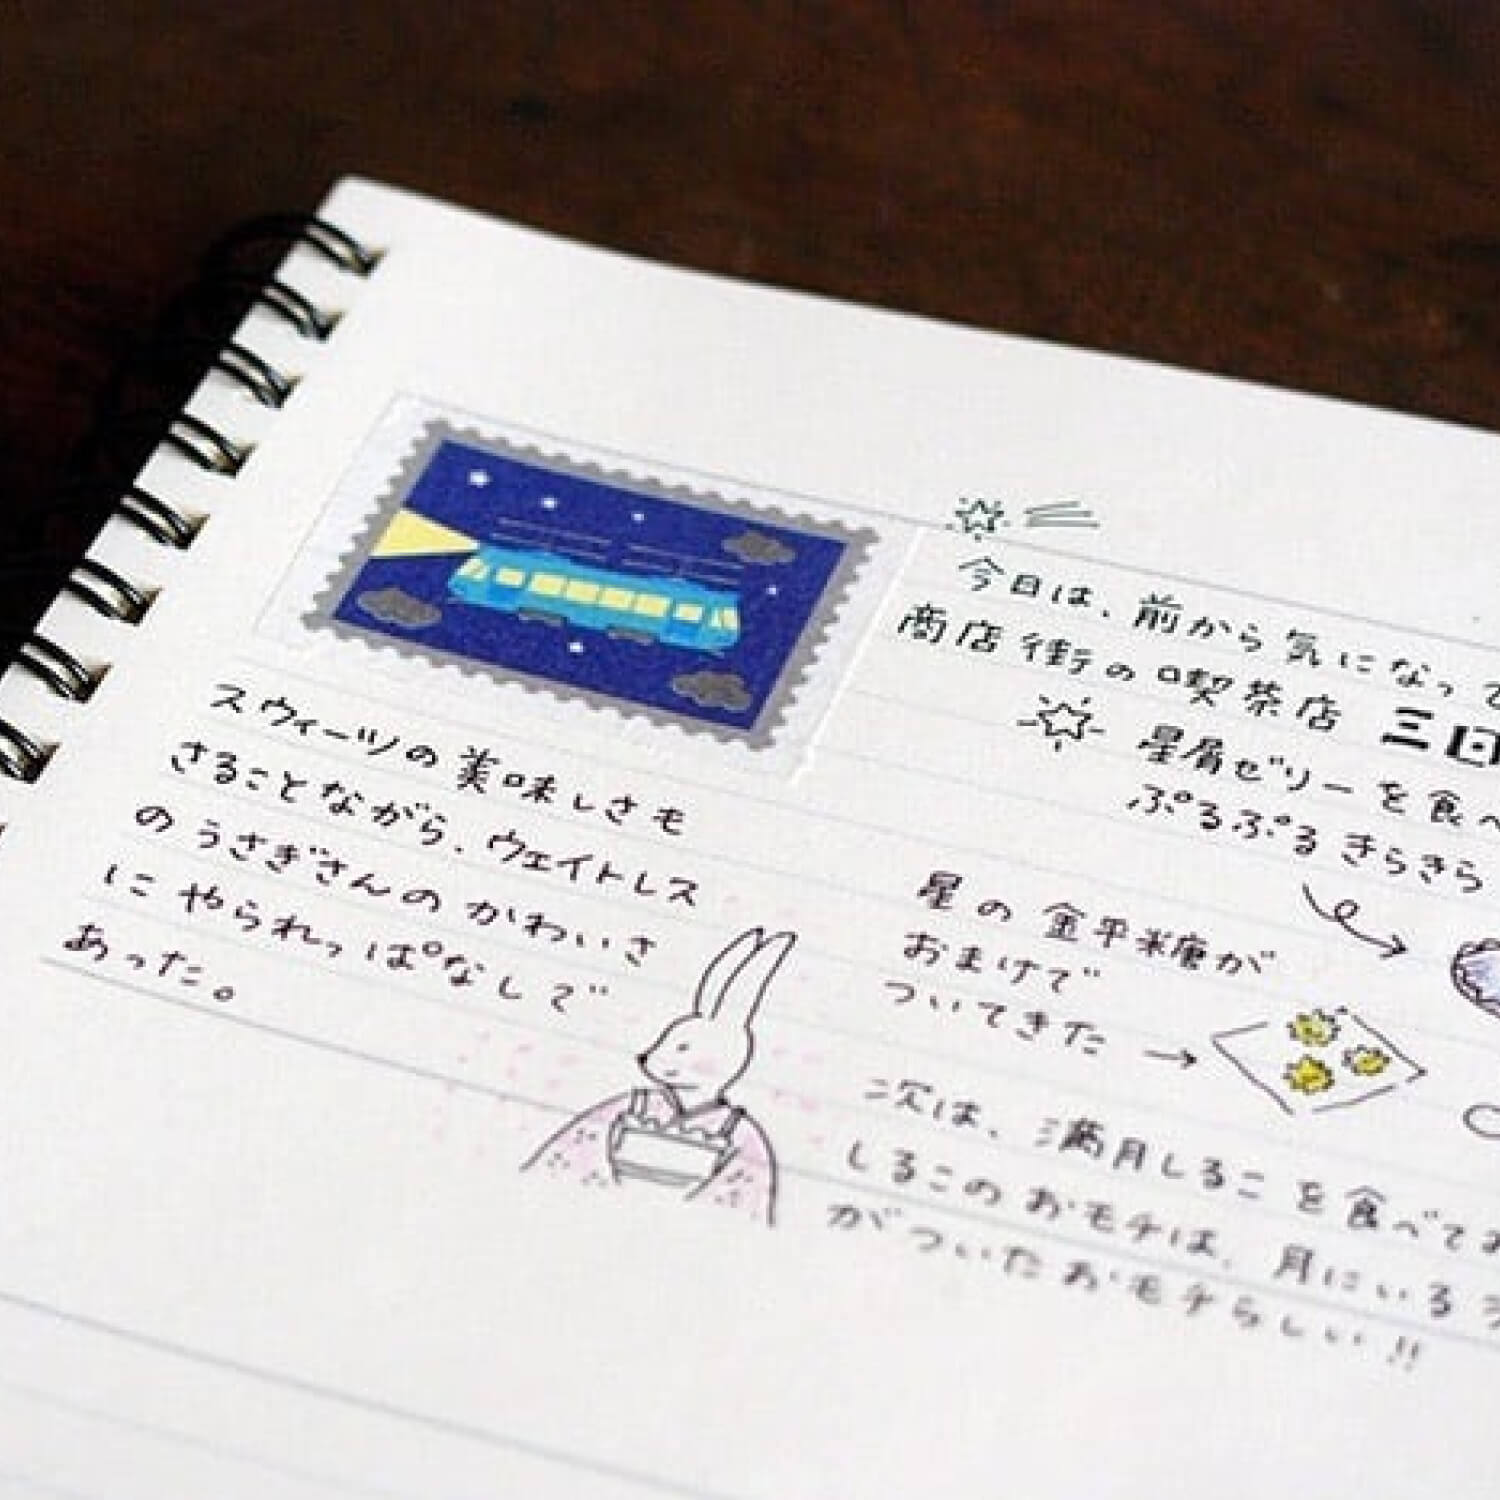 今日は、前から気になって
商店街の喫茶店 三日
星屑ゼリーを食べ
ぷるぷるきらきら
スウィーツの美味しさも
さることながら、ウェイトレス
のうさぎさんのかわいさ
にやられっぱなしで
あった。
星の金平糖が
おまけで
ついてきた →
次は、満月しるこを食べてみ
しるこのおモチは、月にいるう
がついたおモチらしい!!